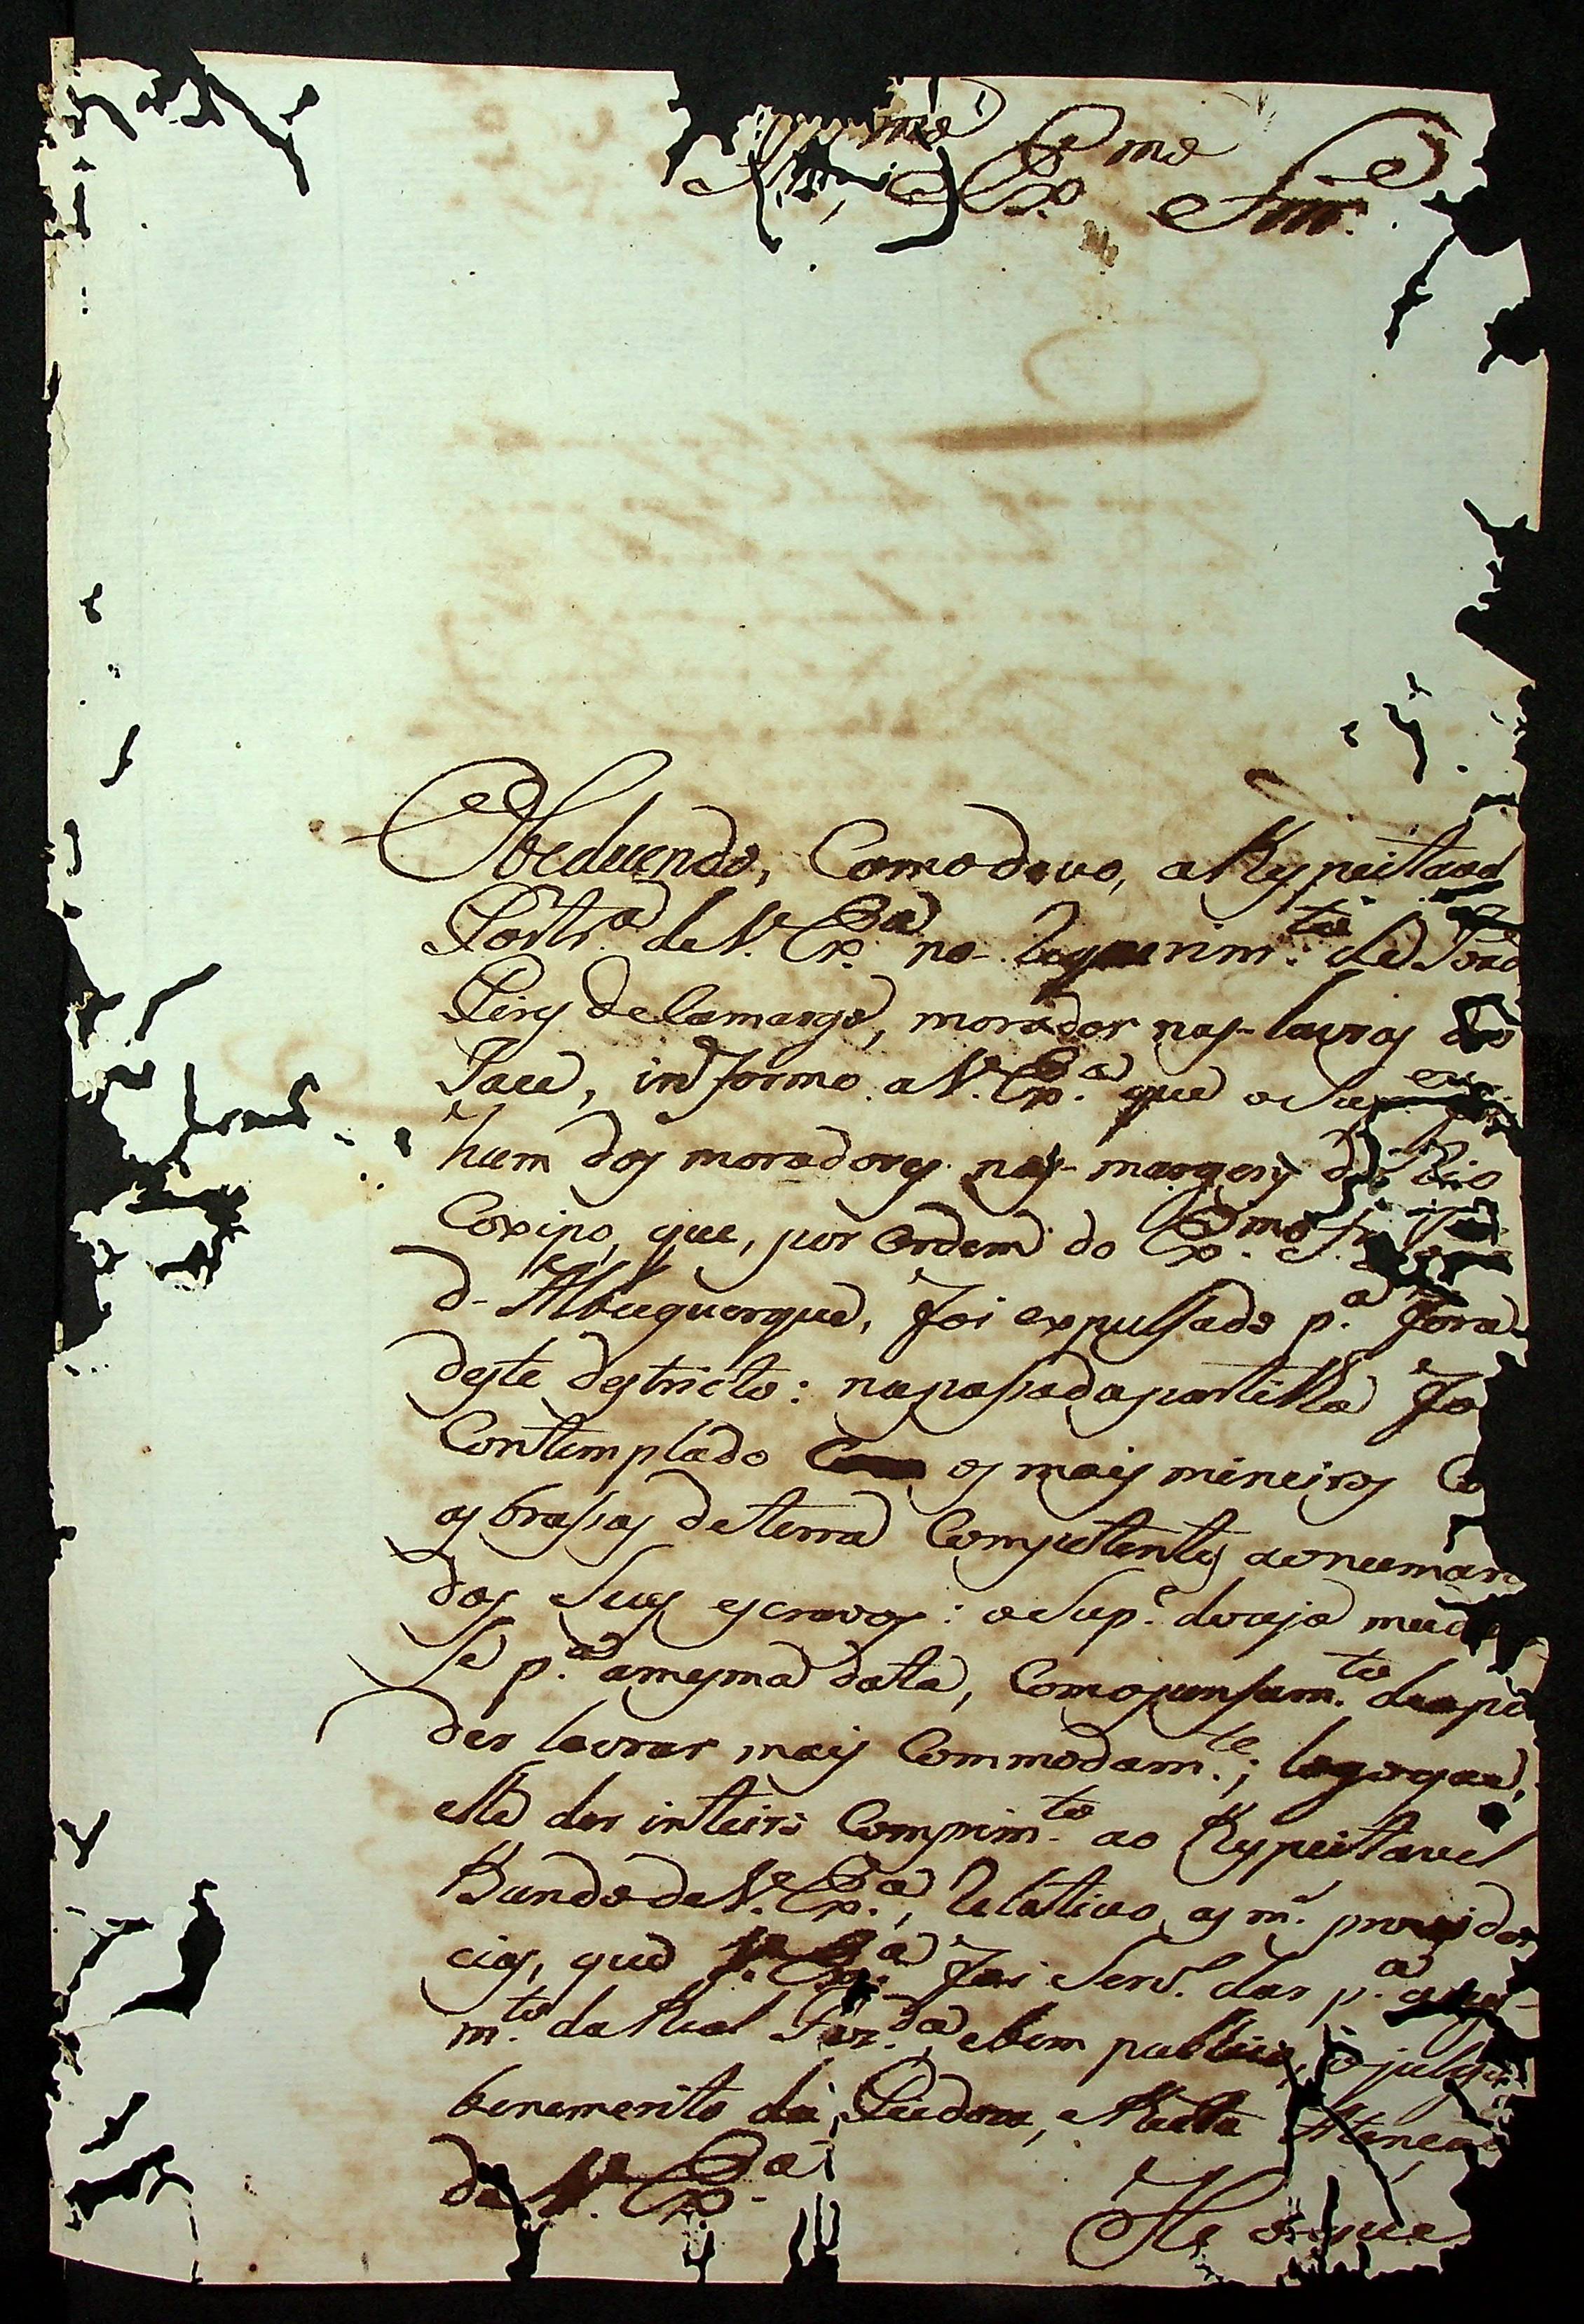 Ex.mo Snr.
Obedecendo, Como devo, a Respeitavel
Portr.a de V. Ex.a no requerim.to de João
Pires de Camargo, morador nas lavras do
Jacé, informo a V. Ex.a que o Sup.e
hum dos moradores nas margens do Rio
Coxipo, que, por Ordem do Ex.mo Snr.
d'Albuquerque, foi expulsado p.a fora
deste destricto: na passada partilha fo
Contemplado os mais mineiros Co
as brassas de terra Competentes ao numar
dos Seus escravos: o Sup.e deceja mud
se p.a a mesma data, Como junsam.to de a pó
der lavrar mais Commodam.te; logo que,
elle der inteiro Comprim.to ao Respeitavel
Bando de V. Ex.a, relativo as m.s providen
cias, que V. Ex.a foi Serv.o dar p.a aug
m.to da Real Faz.da, e bem publico, o julgo
benemerito da Piedoza, e Recta Atenção
de V. Ex.a
He o que